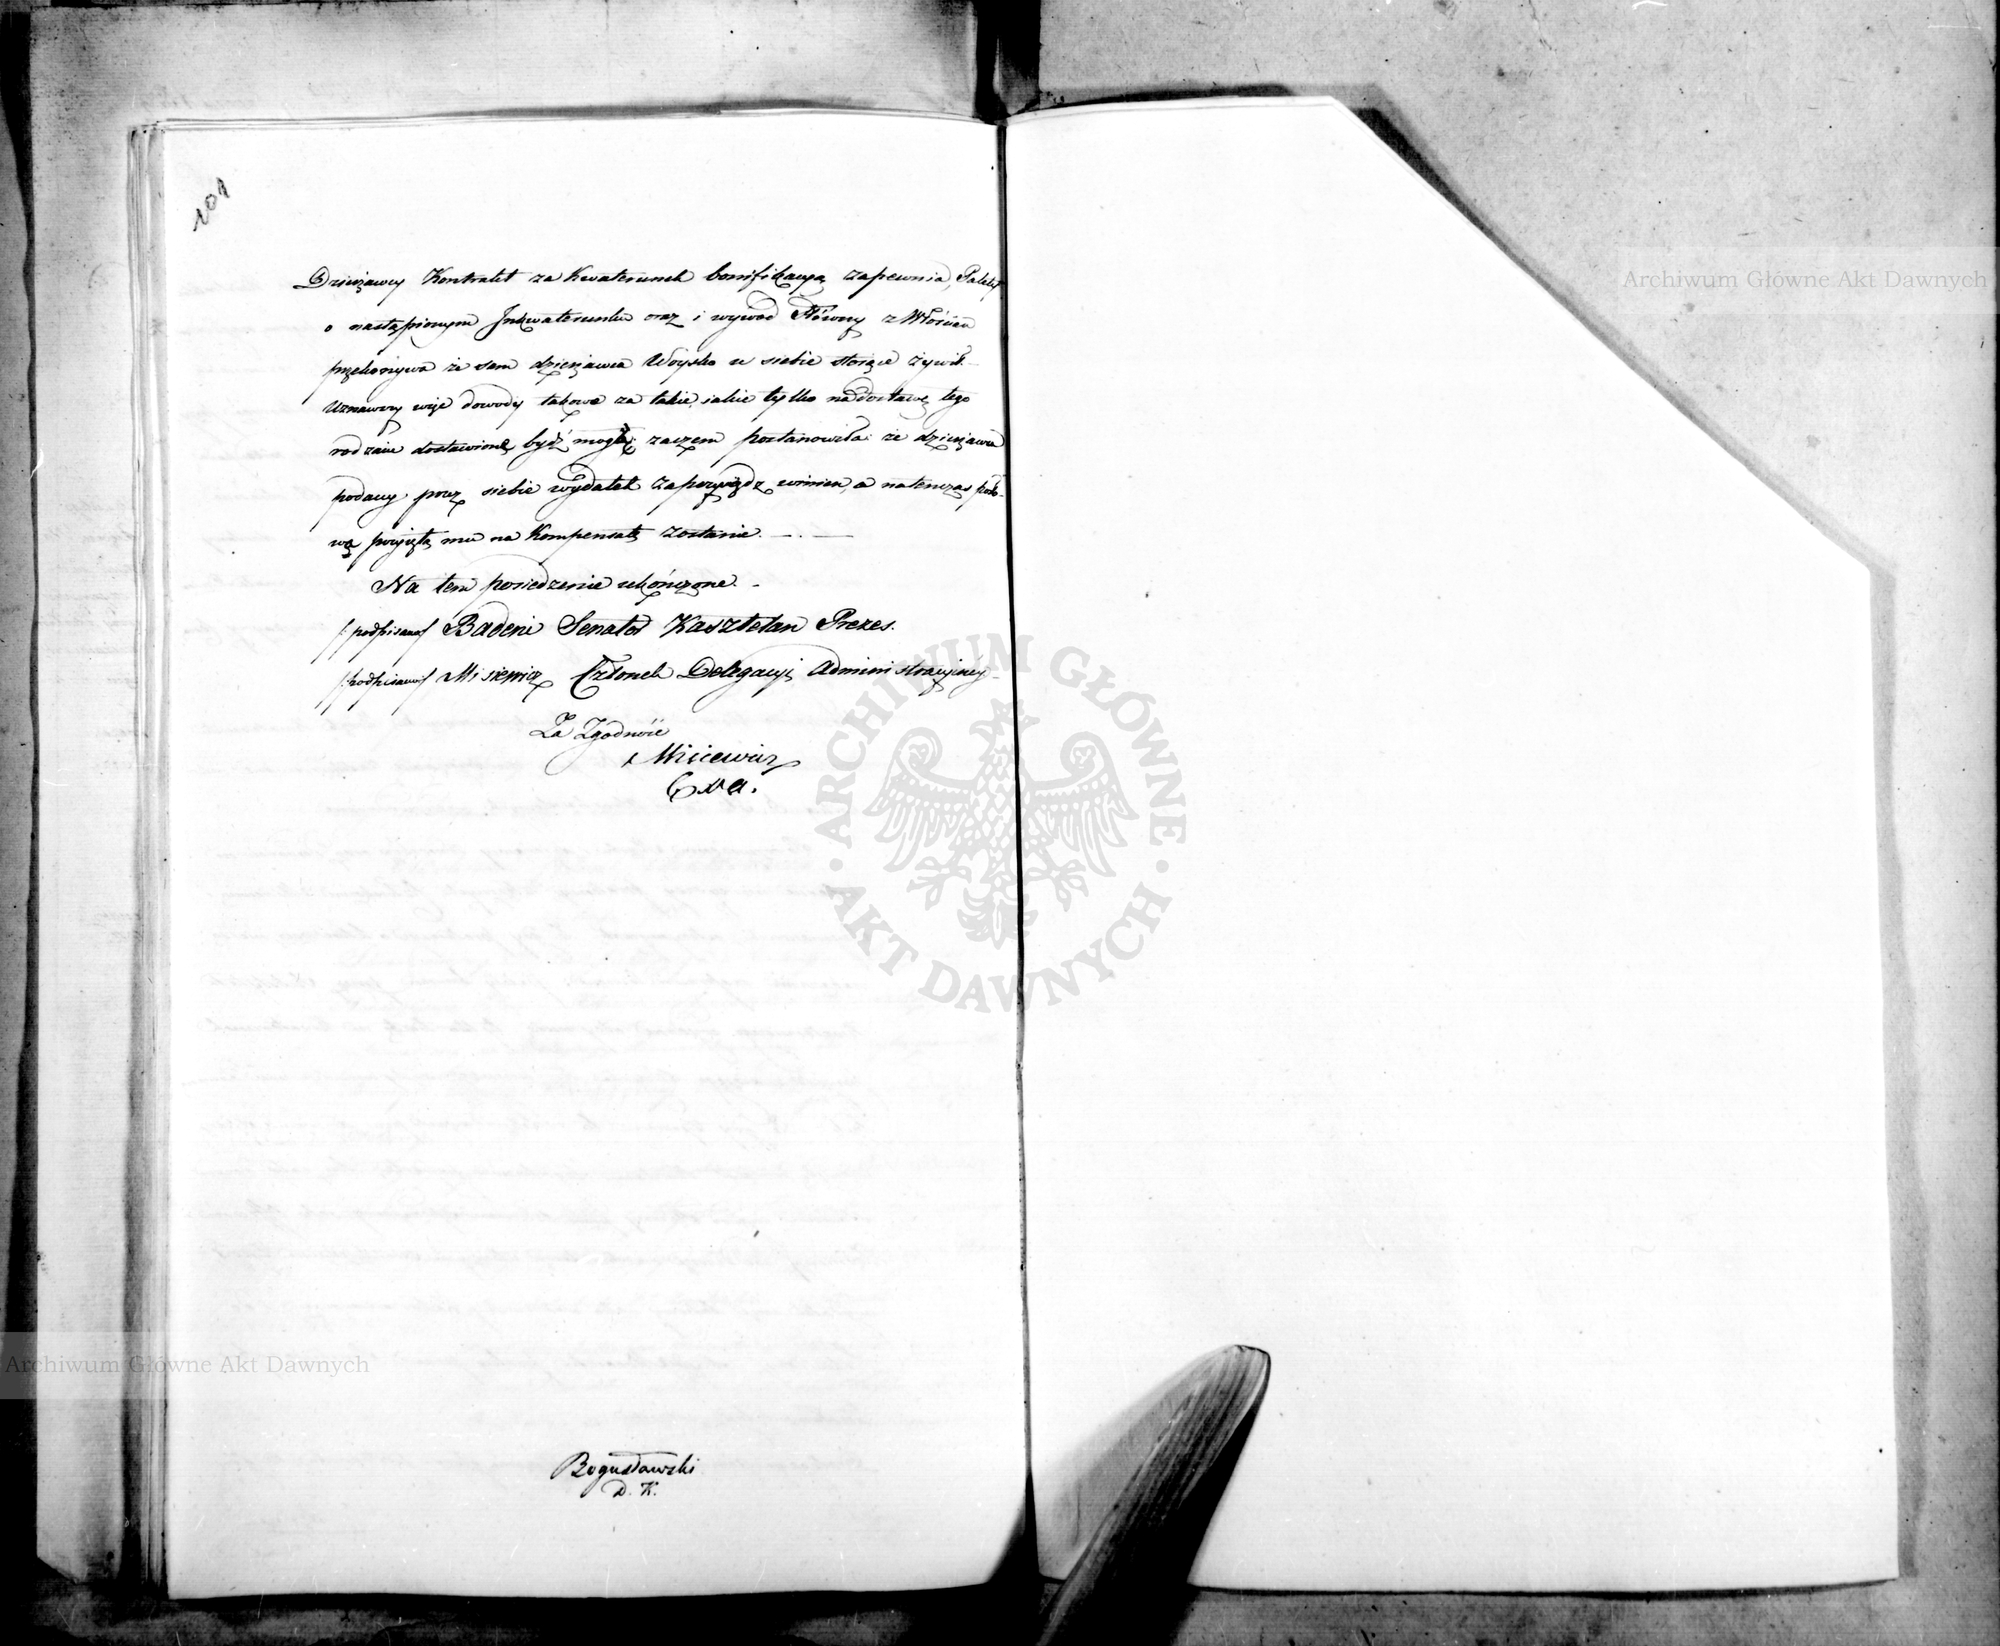 101
Dzierżawcy Kontrakt za Kwaterunek bonifikacyą zapewnia,
o nastąpionym Inkwaterunku oraz i wywod Słówny z Włościan
przekonywa że sam dzierżawca Woysko u siebie stojące żywił
Uznawszy więc dowody takowe za takie, jakie tylko na dostawę tego
rodzaiu dostawione bydź mogły; zaczem postanowiła: że dzierżawca
podany przez siebie wydatek zaprzysiądz winien, a natenczas poło-
wa przyięta mu na Kompensatę zostanie. — . —
Na tem posiedzenie ukończone. -
/:podpisano/ Badeni Senator Kasztelan Prezes.
/:podpisano/ Misiewicz Członek Delegacyi Administracyjney
Za Zgodność
Misiewicz
Bogusławski
D. K.
Archiwum Główne Akt Dawnych
Archiwum Główne Akt Dawnych
ARCHIWUM GŁÓWNE · AKT DAWNYCH ·